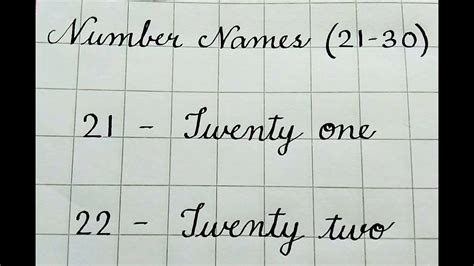 Number Names (21-30)
21 - Twenty one
22 - Twenty two